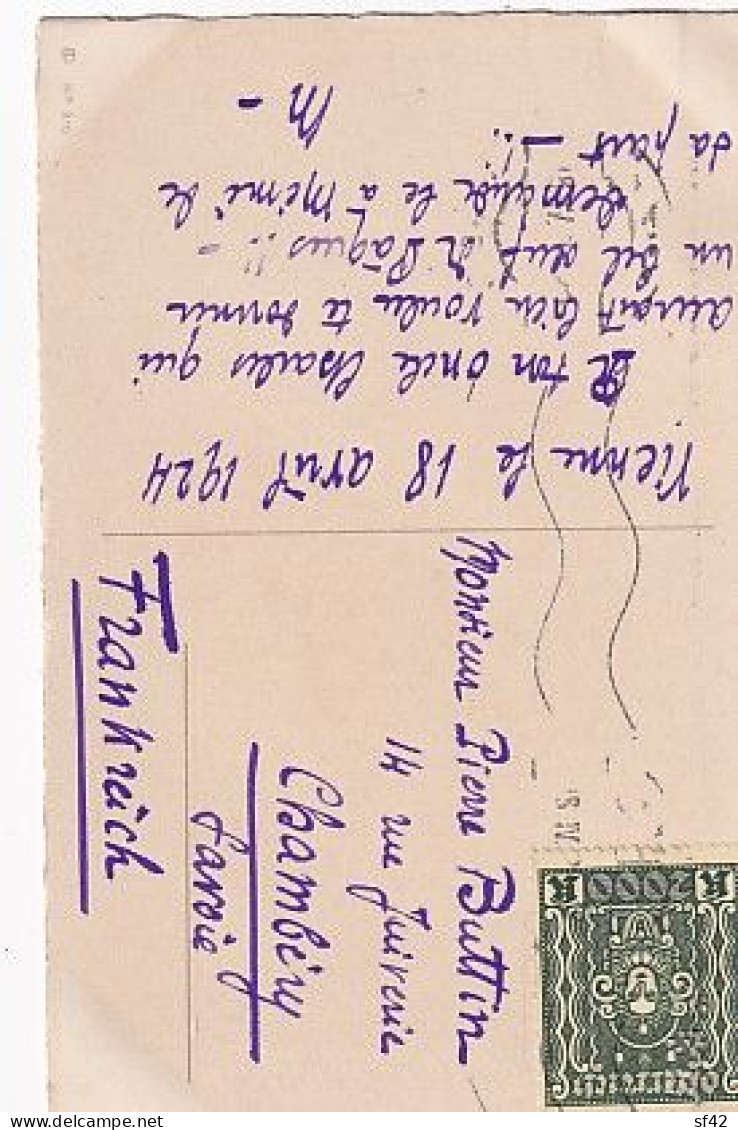 Vienne le 18 avril 1924
De ton oncle Charles qui
aurait bien voulu te donner
un bel œuf de Pâques!! -
demande le à Mémé de
sa part - !!
M -
Monsieur Pierre Buttin
14 rue Juiverie
Chambéry
Savoie
Frankreich
K 2000 K
Österreich
sf42